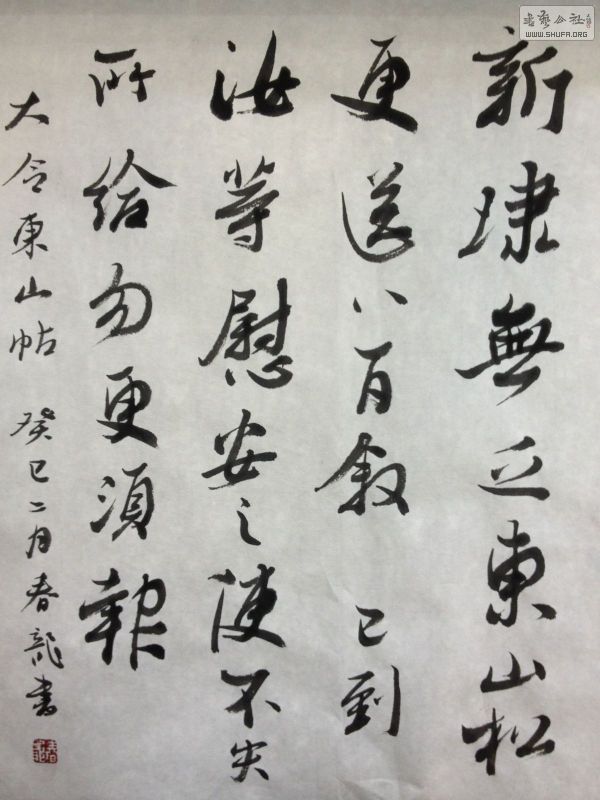 新埭無乏東山松
更送八百敘 已到
汝等慰安之使不失
所給勿更須報
大令東山帖 癸巳二月春龍書
書藝公社
WWW.SHUFA.ORG